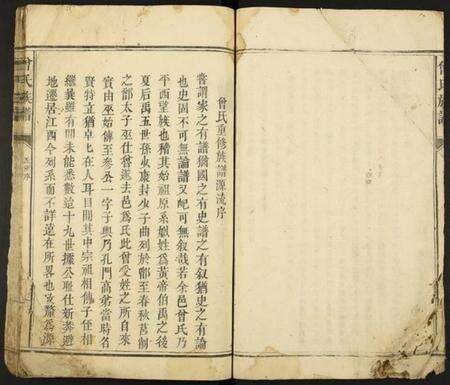 曾氏重修族譜源流序
嘗謂家之有譜猶國之有史譜之有叙猶史之有論
也史固不可無論譜又可無叙哉若余邑曾氏乃
平西望族也稽其始祖原系姒姓爲黃帝伯禹之後
夏后禹五世孫少康封少子曲列於鄫至春秋莒伐
之鄫太子巫仕魯遂去邑爲氏此曾受姓之所自來
實由巫始傳至參公一字子輿乃孔門高弟當時名
賢特立猶卓匕在人耳目間其中宗祖相傳子侄相
繼冀雖有聞未能悉數迨十九世據公恥仕新莽避
地遷居江西今列系而不詳遠在所畧也
曾氏族譜
曾氏族譜